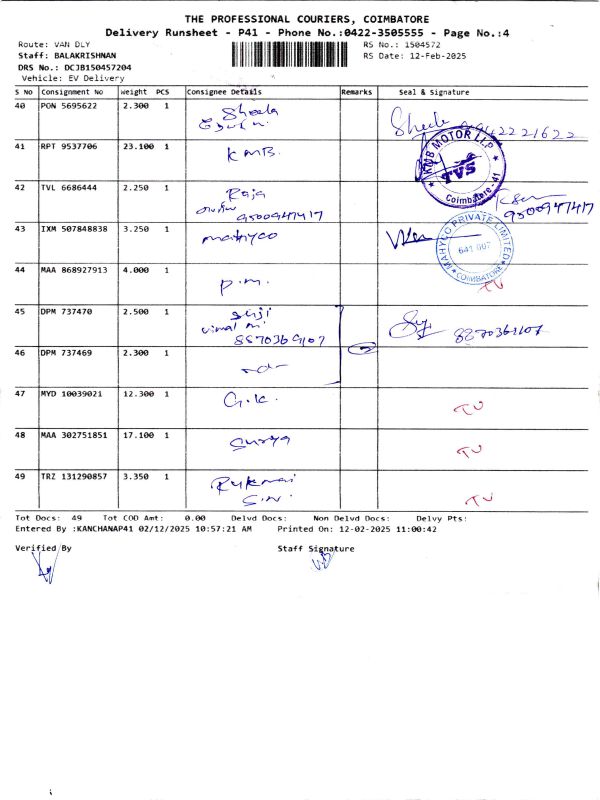 THE PROFESSIONAL COURIERS, COIMBATORE
Delivery Runsheet - P41 - Phone No.:0422-3505555 - Page No.:4
Route: VAN DLY
RS No.: 1504572
Staff: BALAKRISHNAN
RS Date: 12-Feb-2025
DRS No.: DCJB150457204
Vehicle: EV Delivery
S NO Consignment No Weight PCS Consignee Details Remarks Seal & Signature
40 PON 5695622 2.300 1 Sheela
41 RPT 9537706 23.100 1 KMB. KMB MOTOR LLP TVS Coimbatore - 41
42 TVL 6686444 2.250 1 Raja
9500947417 9500947417
43 IXM 507848838 3.250 1 mahyco MAHYCO PRIVATE LIMITED 641 007 COIMBATORE
44 MAA 868927913 4.000 1 P.M. TU
45 DPM 737470 2.500 1 Suji
8870369107
46 DPM 737469 2.300 1
47 MYD 10039021 12.300 1 G.K. TU
48 MAA 302751851 17.100 1 Surya TU
49 TRZ 131290857 3.350 1 TU
Tot Docs: 49 Tot COD Amt: 0.00 Delvd Docs: Non Delvd Docs: Delvy Pts:
Entered By :KANCHANAP41 02/12/2025 10:57:21 AM Printed On: 12-02-2025 11:00:42
Verified By Staff Signature